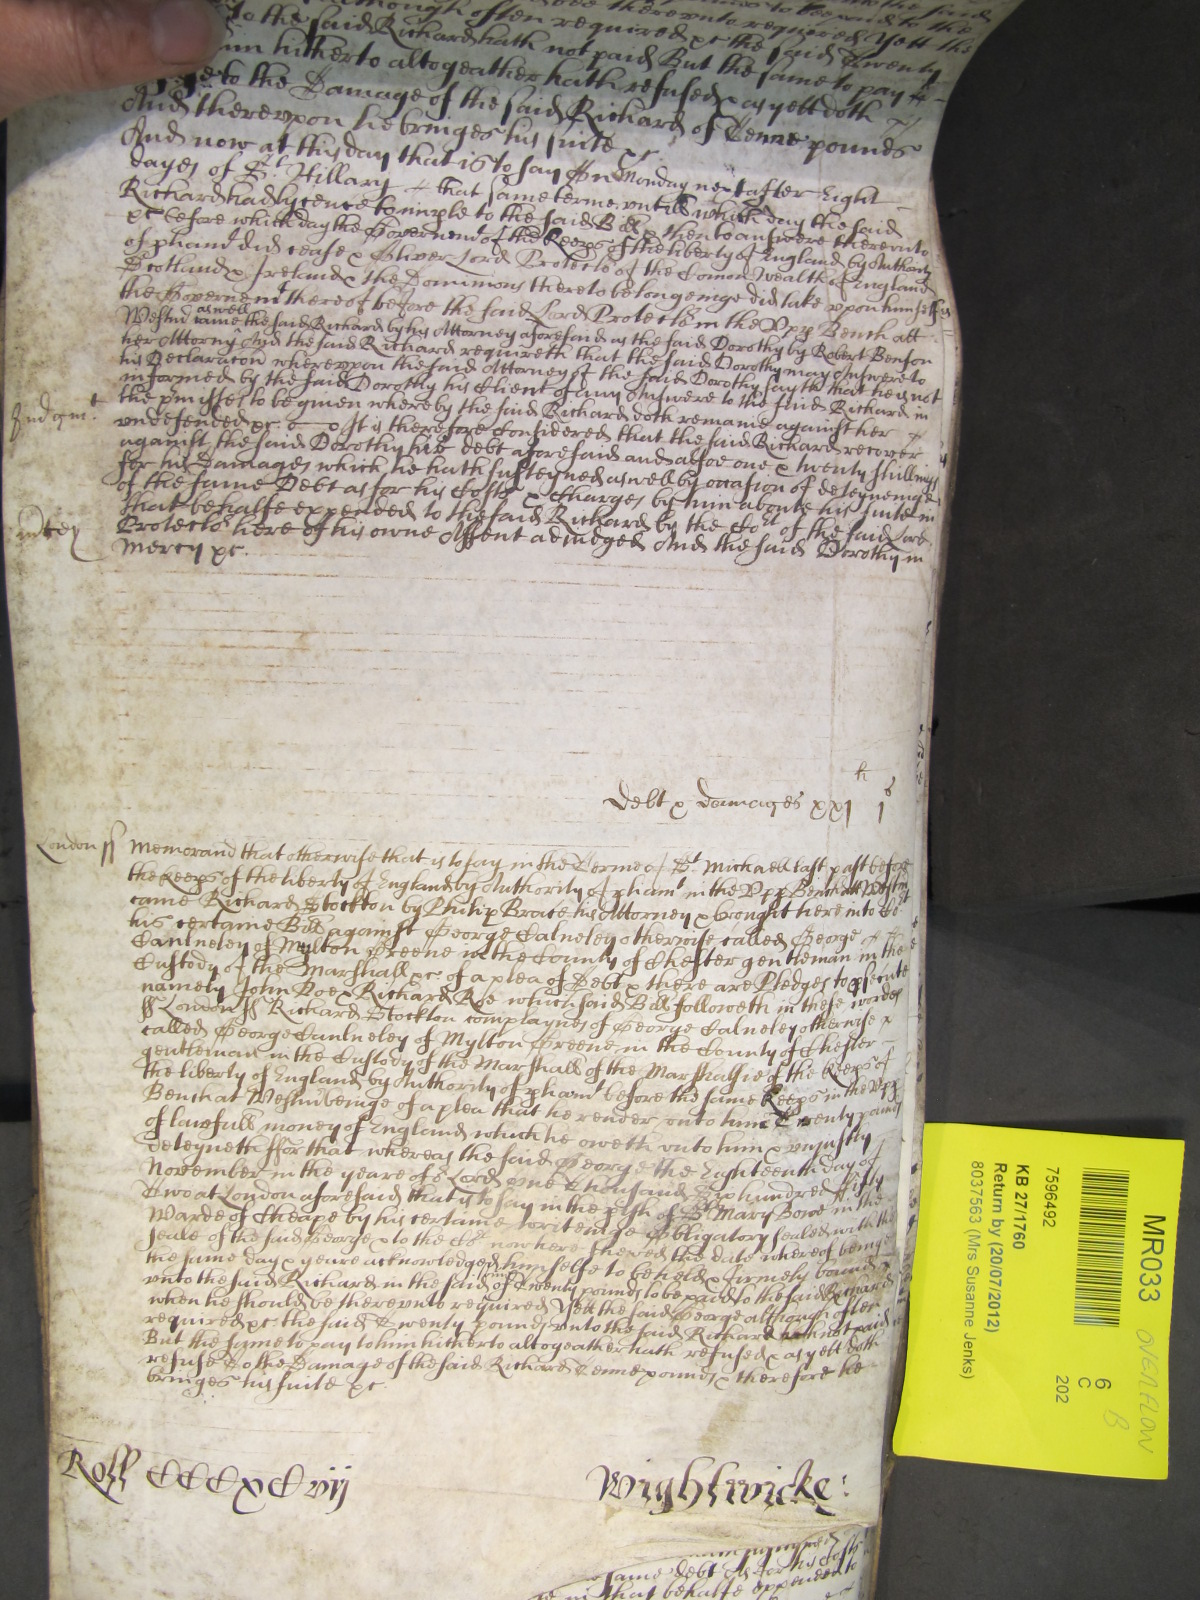 although often required &c the said Twenty
to the said Richard hath not paid But the same to pay
him hitherto altogeather hath refused & as yett doth
to the Damage of the said Richard of Tenne pounds
And thereupon he bringes his suite &c
And now at this day that is to say On Monday next after Eight
dayes of St Hillary that same terme untill which day the said
Richard had lycence to imple to the said Bill & then to answere thereunto
&c before which day the Governemt of the Keeps of the liberty of England by Authority
of pliamt did cease & Oliver Lord Protector of the Comon Wealth of England
Scotland & Ireland & the Dominions thereto belongeinge did take upon himselfe
the Governemt thereof before the said Lord Protector in the Upp Bench att
Westm came aswell the said Richard by his Attorney aforesaid as the said Dorothy by Robert Benson
her Attorny And the said Richard requireth that the said Dorothy may Answere to
his Declaracon whereupon the said Attorney of the said Dorothy sayth that hee is not
informed by the said Dorothy his Client of any Answere to the said Richard in
Judgmt the pmisses to be given whereby the said Richard doth remaine against her
undefended &c It is therefore Considered that the said Richard recover
against the said Dorothy his debt aforesaid and alsoe one & twenty shillings
for his Damages which he hath susteyned aswell by occasion of deteyneinge
of the same Debt as for his Costs & Charges by him aboute his suite in
mercy that behalfe expended to the said Richard by the Cort of the said Lord
Protector here of his owne Assent adjudged And the said Dorothy in
Mercy &c.
Debt & damages xxj li j s
London ss Memorand that otherwise that is to say in the Terme of St Michaell last past before
the Keeps of the liberty of England by Authority of pliamt in the Upp Bench att Westm
came Richard Stockton by Philip Brace his Attorney & brought here into Cort
his certaine Bill against George Calneley otherwise called George
Caulneley of Mylton Greene in the County of Chester gentleman in the
Custody of the Marshall &c of a plea of Debt & there are Pledges to psecute
namely John Doe & Richard Roe which said Bill followeth in these wordes
ss London ss Richard Stockton complaynes of George Calneley otherwise
called George Caulneley of Mylton Greene in the County of Chester
gentleman in the Custody of the Marshall of the Marshalsie of the Keeps of
the liberty of England by Authority of pliamt before the same Keeps in the Upp
Bench at Westm beinge of a plea that he render unto him Twenty pounds
of lawfull money of England which he oweth unto him & unjustly
deteyneth ffor that whereas the said George the Eighteenth day of
November in the yeare of or Lord one thousand Six hundred fifty
Two at London aforesaid that is to say in the pish of St Mary Bowe in the
Warde of Cheape by his certaine writeinge Obligatory sealed with the
seale of the said George & to the Cort now here shewed the date whereof beinge
the same day & yeare acknowledged himselfe to be held & firmely bound
unto the said Richard in the said sum of Twenty pounds to be paid to the said Richard
when he should be thereunto required Yett the said George although often
required &c the said Twenty pounds unto the said Richard hath not paid
But the same to pay to him hitherto altogeather hath refused & as yett doth
refuse To the Damage of the said Richard Tenne pounds & therefore he
bringes his suite &c
Roll CCCxCvij Wightwicke:
same debt as for his Costs
in that behalfe expended to
MR033
OVERFLOW
7596492
6
C
202
B
KB 27/1760
Return by (20/07/2012)
8037563 (Mrs Susanne Jenks)